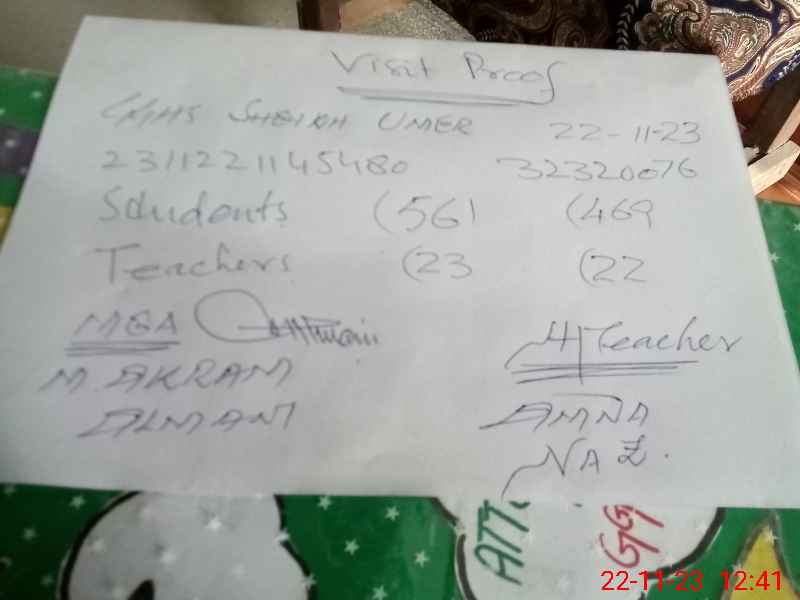 Visit Proof
GGHS SHEIKH UMER 22-11-23
2311221145480 32320076
Students (561 (469
Teachers (23 (22
MEA H/Teacher
M. AKRAM AMNA
NAZ.
ATT
GG
22-11-23 12:41